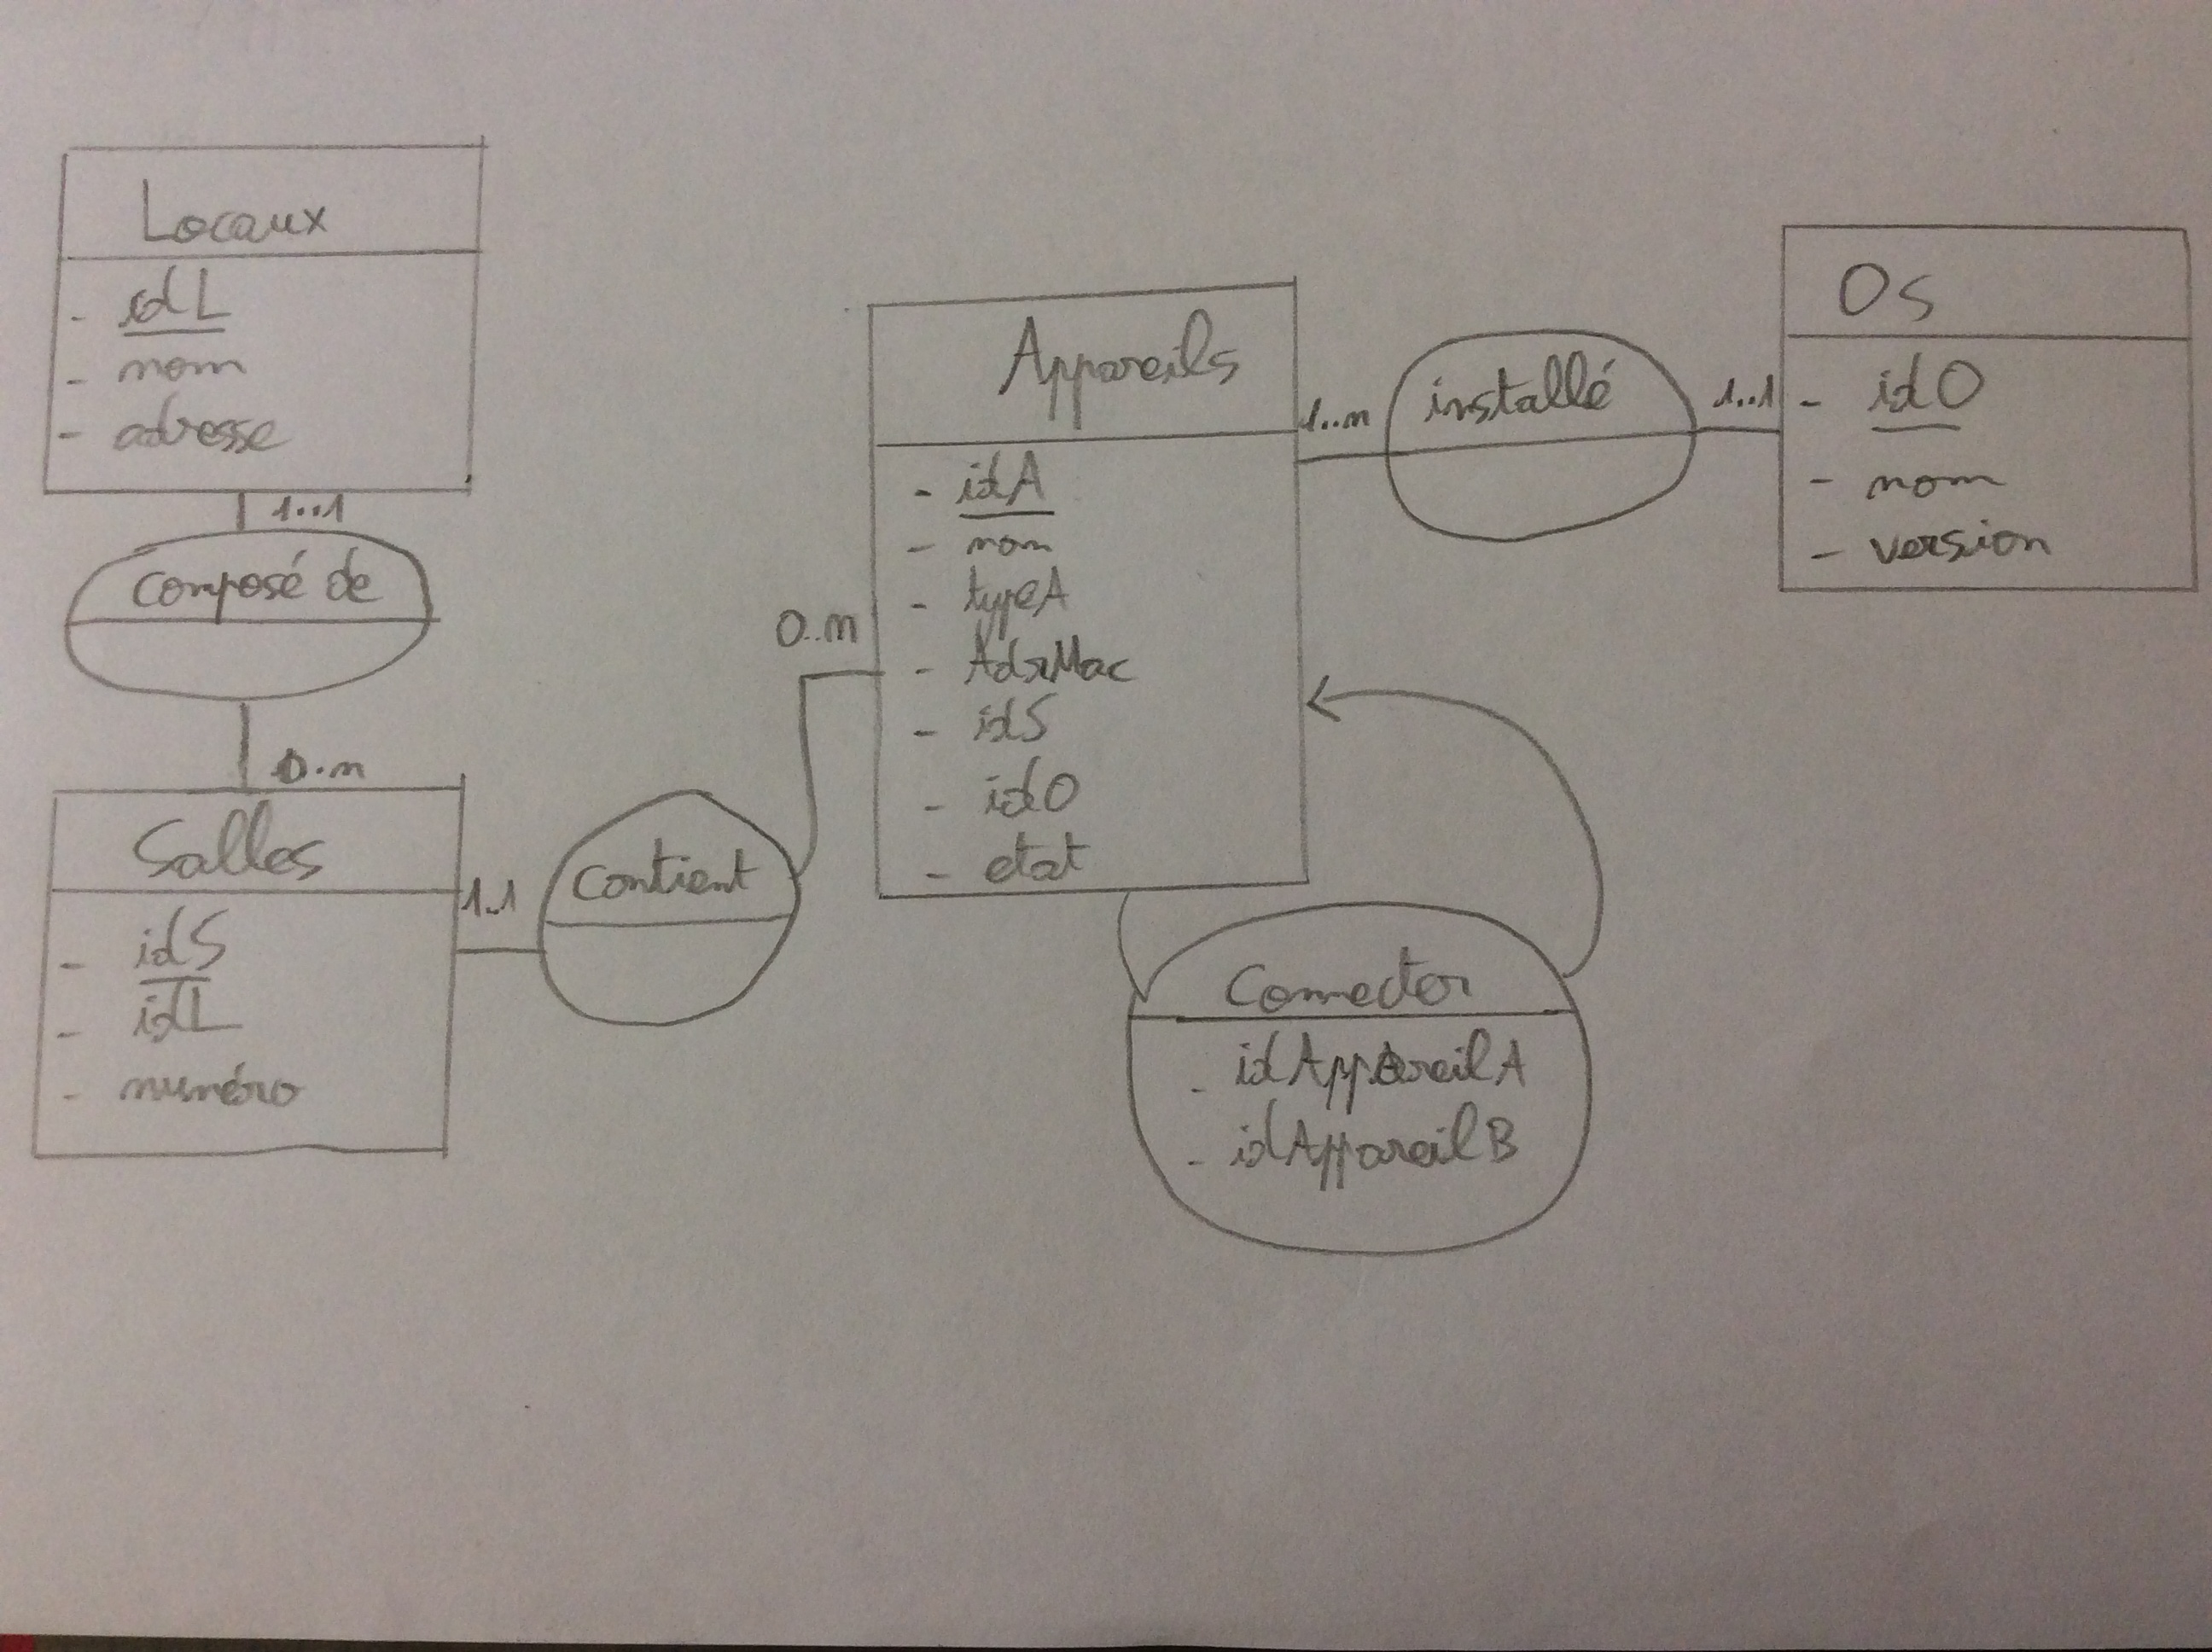 Locaux
- idL
- nom
- adresse
1..1
composé de
0..n
Salles
- idS
- idL
- numéro
1..1
Contient
0..n
Appareils
- idA
- nom
- typeA
- AdrMac
- idS
- idO
- etat
1..n
installé
1..1
OS
- idO
- nom
- version
Connecter
- idAppareilA
- idAppareilB